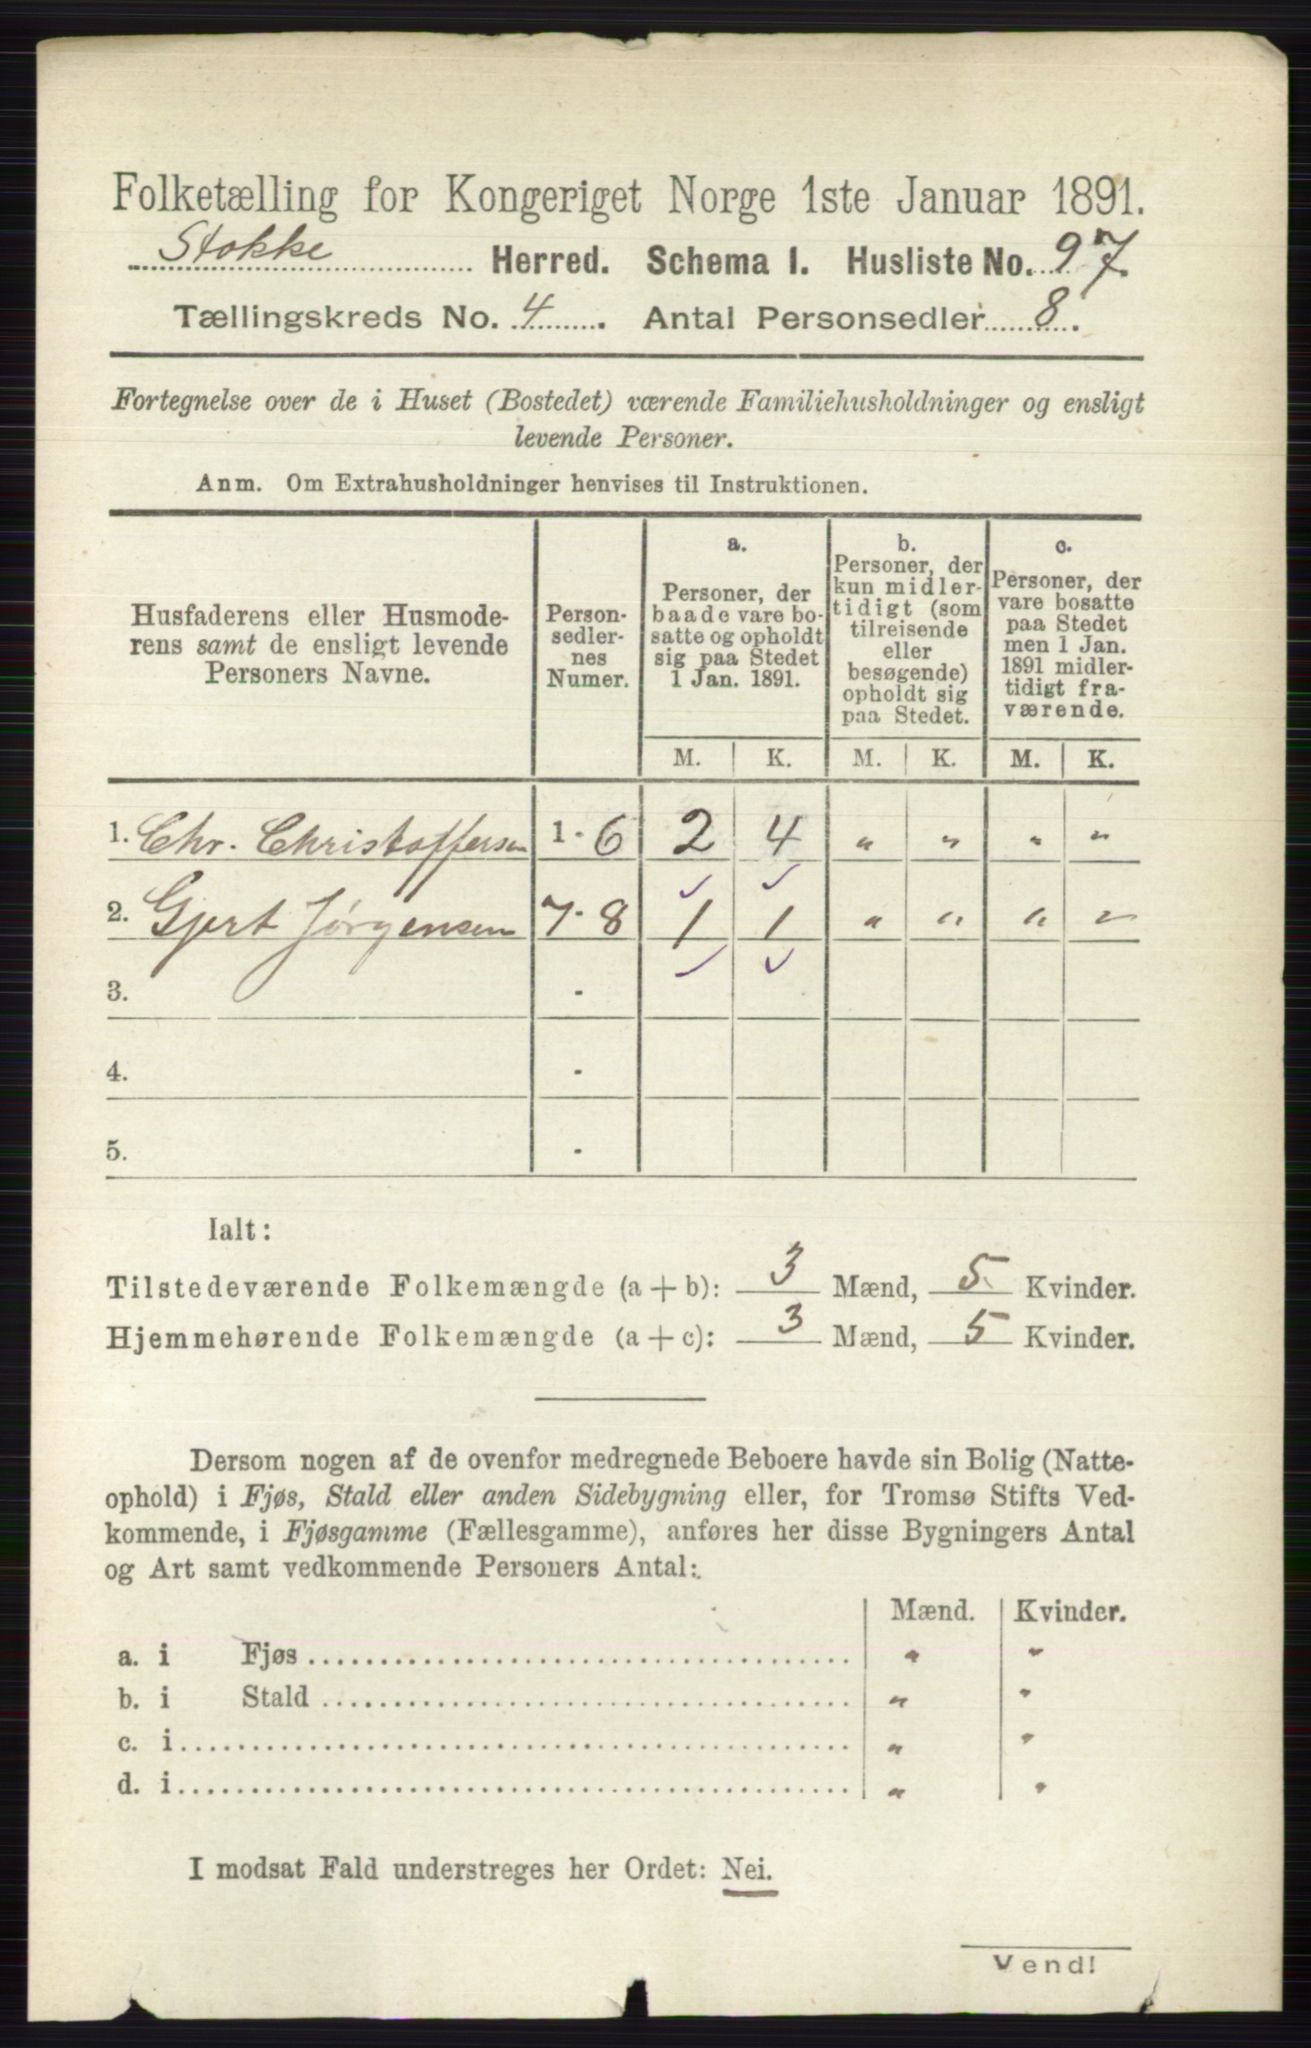 Folketælling for Kongeriget Norge 1ste Januar 1891.
Stokke Herred. Schema I. Husliste No. 97.
Tællingskreds No. 4. Antal Personsedler 8.
Fortegnelse over de i Huset (Bostedet) værende Familiehusholdninger og ensligt
levende Personer.
Anm. Om Extrahusholdninger henvises til Instruktionen.
Husfaderens eller Husmode-
rens samt de ensligt levende
Personers Navne.
Person-
sedler-
nes
Numer.
a.
Personer, der
baade vare bo-
satte og opholdt
sig paa Stedet
1 Jan. 1891.
b.
Personer, der
kun midler-
tidigt (som
tilreisende
eller
besøgende)
opholdt sig
paa Stedet.
c.
Personer, der
vare bosatte
paa Stedet
men 1 Jan.
1891 midler-
tidigt fra-
værende.
M. K. M. K. M. K.
1. Chr. Christoffersen 1 - 6 2 4 " " " "
2. Gjert Jørgensen 7 - 8 1 1 " " " "
3. -
4. -
5. -
Ialt:
Tilstedeværende Folkemængde (a + b): 3 Mænd, 5 Kvinder.
Hjemmehørende Folkemængde (a + c): 3 Mænd, 5 Kvinder.
Dersom nogen af de ovenfor medregnede Beboere havde sin Bolig (Natte-
ophold) i Fjøs, Stald eller anden Sidebygning eller, for Tromsø Stifts Ved-
kommende, i Fjøsgamme (Fællesgamme), anføres her disse Bygningers Antal
og Art samt vedkommende Personers Antal:
Mænd. Kvinder.
a. i Fjøs " "
b. i Stald " "
c. i " "
d. i " "
I modsat Fald understreges her Ordet: Nei.
Vend!